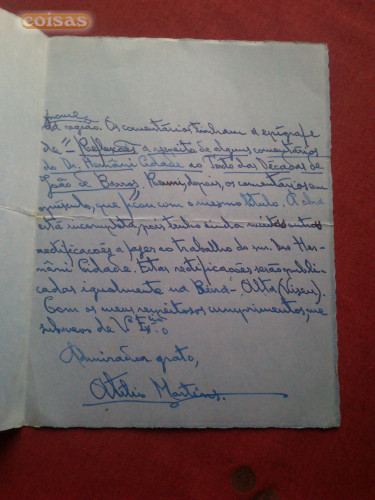 coisas
da região. Os comentários tinham a epígrafe
de "Reflexões a respeito de alguns comentários
do Dr. Hernâni Cidade ao Texto das Décadas de
João de Barros. Reuni, depois, os comentários em
opúsculo, que ficou com o mesmo título. A obra
está incompleta, pois tenho ainda muitas outras
rectificações a fazer ao trabalho do sr. Dr. Her-
nâni Cidade. Estas rectificações serão publi-
cadas igualmente na Beira-Alta (Viseu).
Com os meus respeitosos cumprimentos, me
subscrevo de V. Ex.ª
Admirador grato,
Martins.